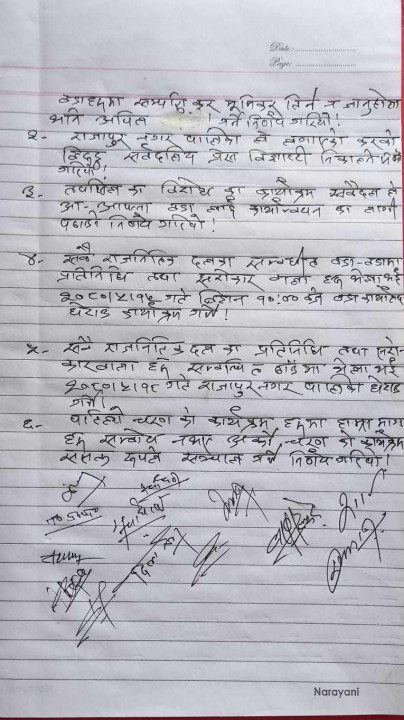 Date:
Page:
वडाहरुमा सम्पत्ति कर भूमिकर तिर्न न जानुहोला
भनि अपिल गर्ने निर्णय गरियो!
२- राजापुर नगर पालिका ले लगाएको करको
विरुद्ध सर्वदलीय प्रेस विज्ञप्ती निकाल्ने निर्णय
गरियो!
३- तपसिल का विरोध का कार्यक्रम सर्वदल ले
आ-आफ्ना वडा लाई कार्यान्वयन का लागी
पठाउने निर्णय गरियो!
४- सबै राजनितिक दलका सम्बन्धित वडा-वडामा
प्रतिनिधि तथा सरोकार वाला हरु भेला भई
२०८०।५।१५ गते बिहान १०:०० बजे वडा कार्यालय
घेराउ कार्यक्रम गर्ने!
५- सबै राजनितिक दल का प्रतिनिधि तथा सरो-
कारवाला हरु सम्बन्धित ठाँउ मा भेला भई
२०८०।५।१८ गते राजापुर नगर पालिका घेराउ
गर्ने!
६- पहिलो चरण को कार्यक्रम हरुमा हाम्रा माग
हरु सम्बोध नभए अर्को चरण को कार्यक्रम
सशक्त रुपले सञ्चालन गर्ने निर्णय गरियो।
Narayani